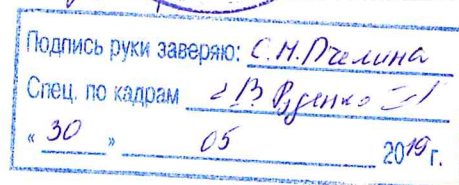 Подпись руки заверяю: С.Н. Пчелина
Спец. по кадрам Руденко
« 30 » 05 2019 г.